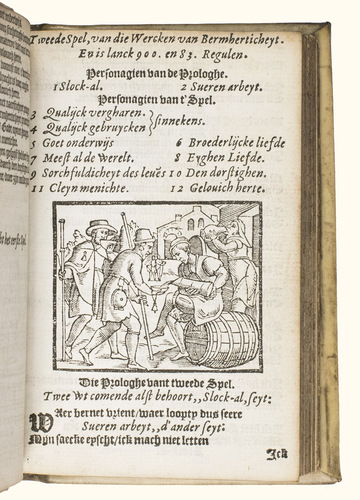 Tweede Spel, van die Wercken van Bermherticheyt.
En is lanck 900. en 83. Regulen.
Personagien van de Prologhe.
1 Slock-al. 2 Sueren arbeyt.
Personagien van t'Spel.
3 Qualijck vergharen.
4 Qualijck gebruycken } sinnekens.
5 Goet onderwijs 6 Broederlijcke liefde
7 Meest al de Werelt. 8 Eyghen Liefde.
9 Sorchfuldicheyt des leuēs 10 Den dorstighen.
11 Cleyn menichte. 12 Gelouich herte.
Die Prologhe vant tweede Spel.
Twee wt comende alst behoort,, Slock-al, seyt:
WAer hernet vrient/waer loopty dus seere
Sueren arbeyt,, d'ander seyt:
Mijn saecke eyscht/ick mach niet letten
Ick